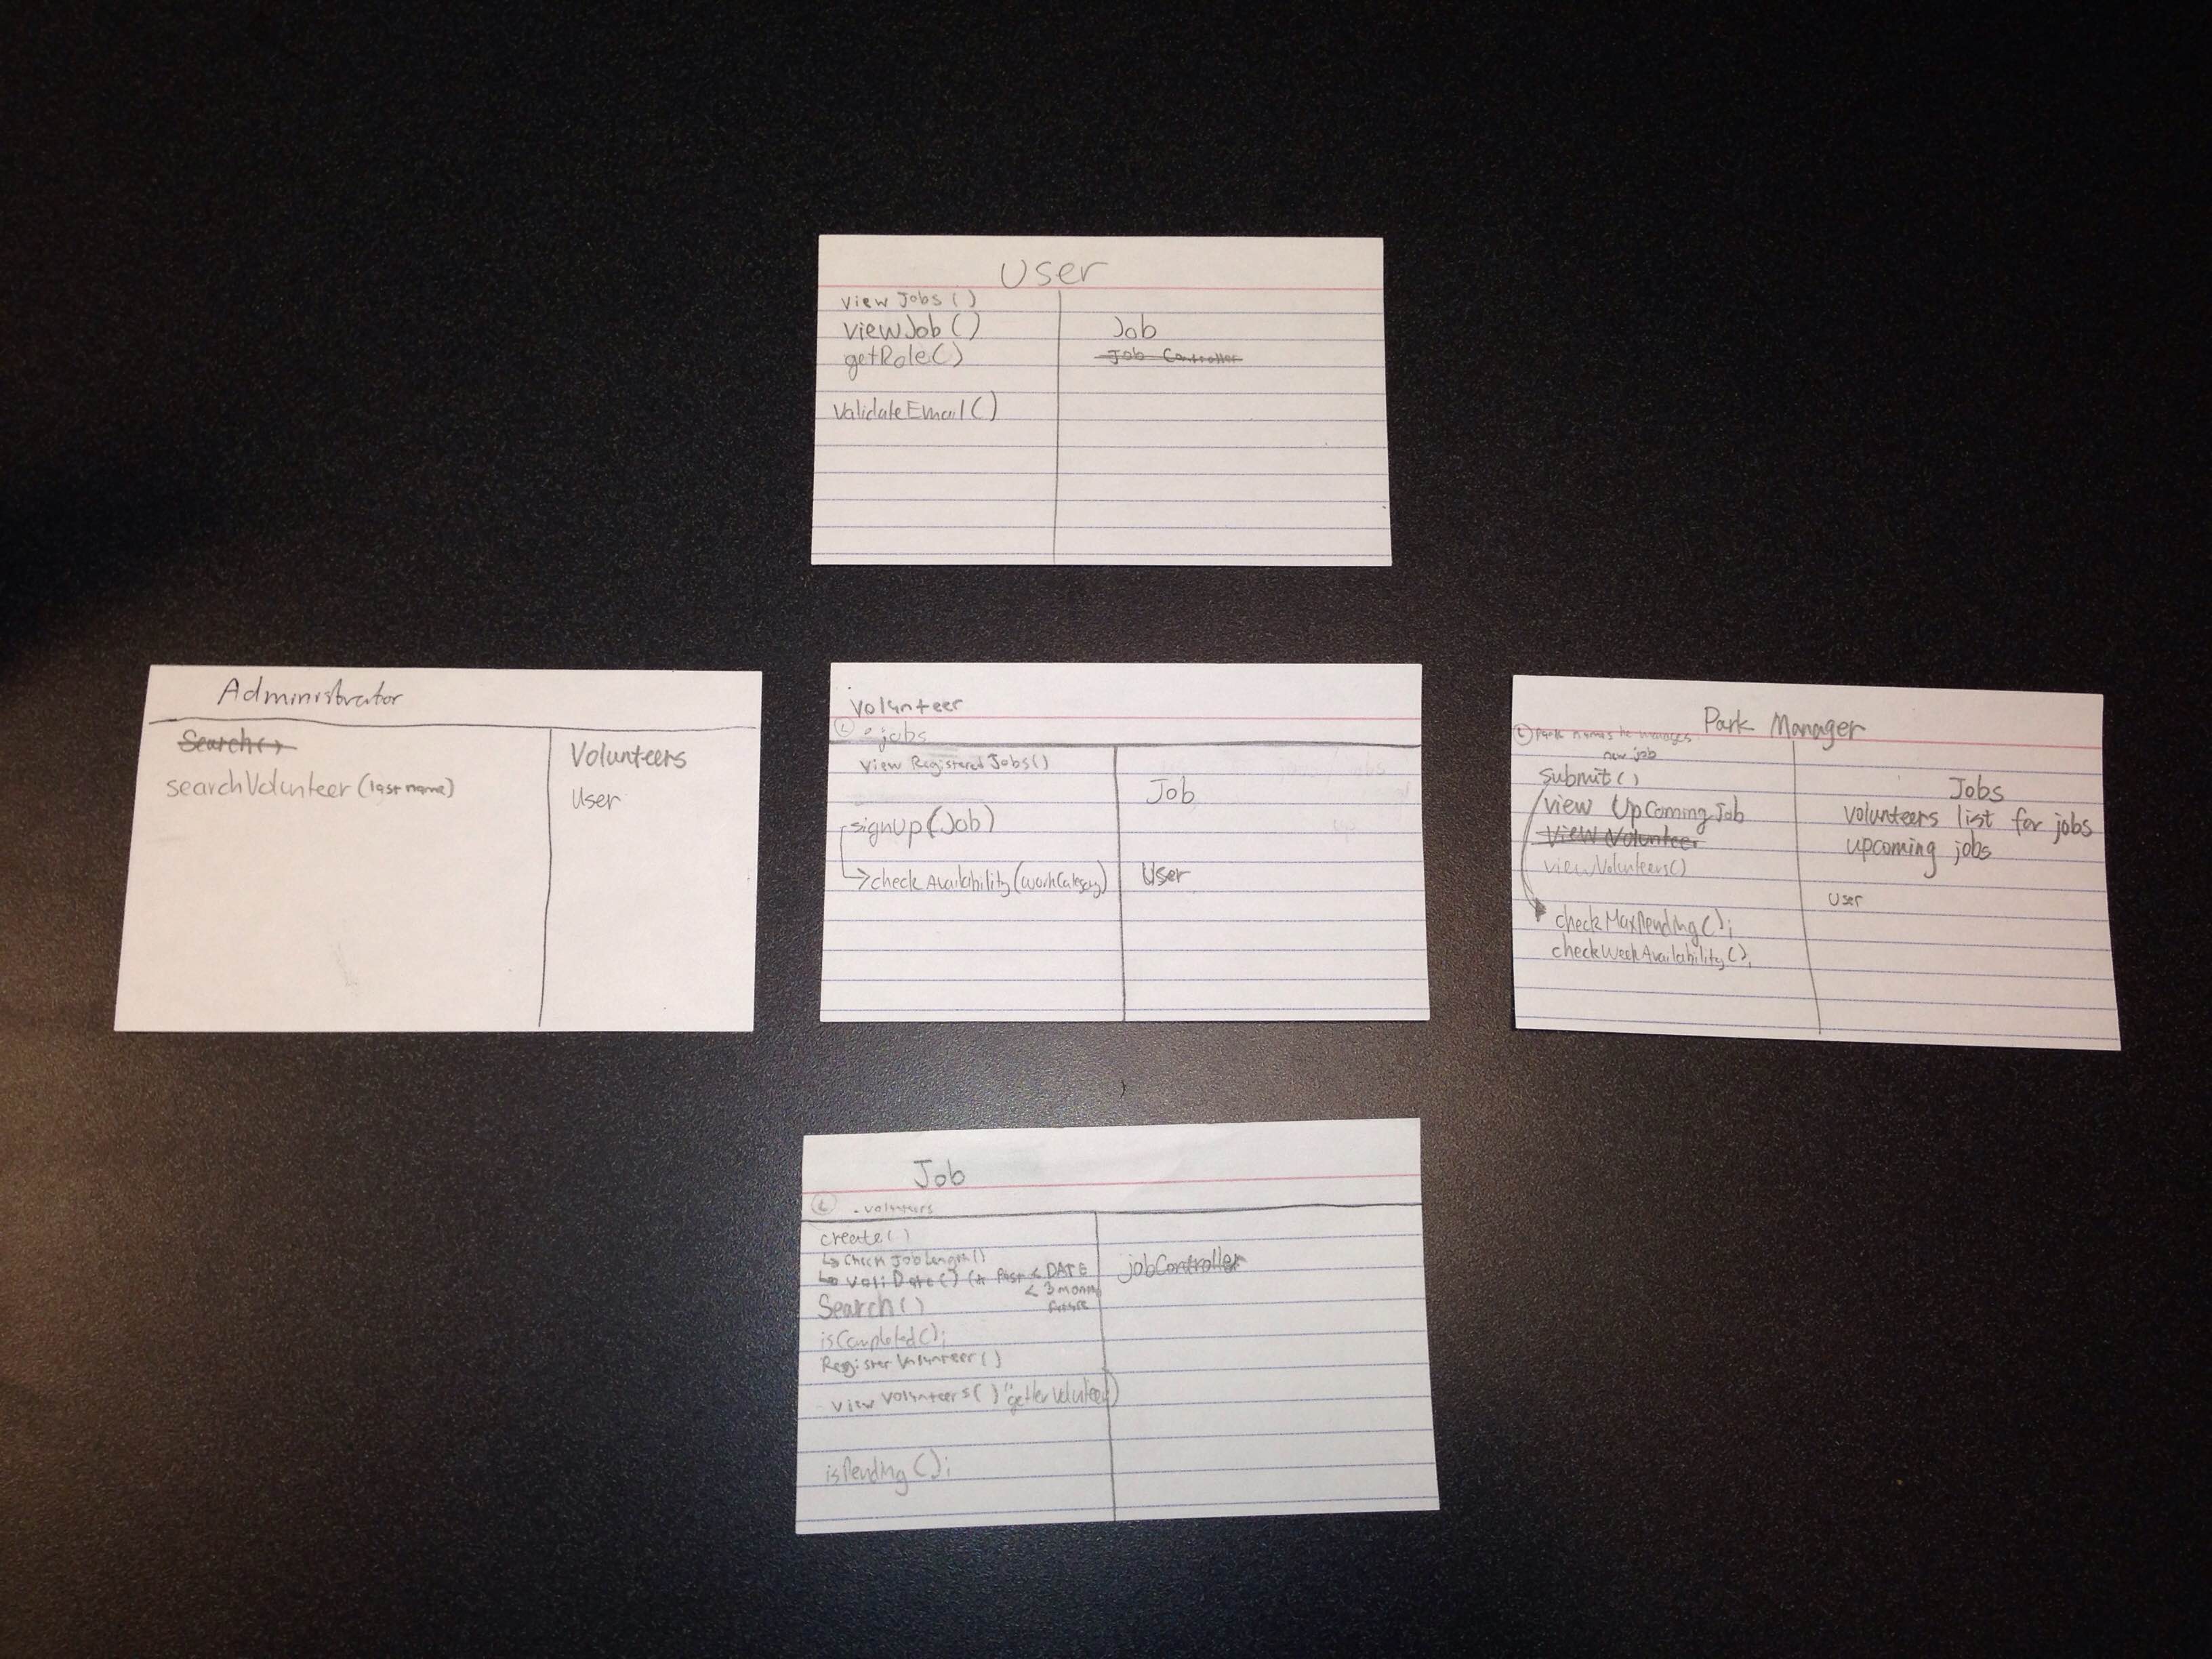 User
view Jobs ( )
viewJob ( ) Job
getRole( ) Job Controller
validateEmail ( )
Administrator
Search( )
searchVolunteer (last name)
Volunteers
User
volunteer
• jobs
view Registered Jobs ( )
Job
signUp (Job)
checkAvailability (workCategory)
User
Park Manager
Park names he manages
new job
submit ( )
view UpComing Job
View Volunteer
viewVolunteers( )
checkMaxPending ( );
checkWeekAvailability ( );
Jobs
volunteers list for jobs
upcoming jobs
User
Job
. volunteers
create ( )
↳ check JobLength ( )
↳ valiDate ( ) past < DATE
< 3 month
future
Search ( )
isCompleted ( );
Register Volunteer ( )
- view volunteers ( )
isPending ( );
jobController